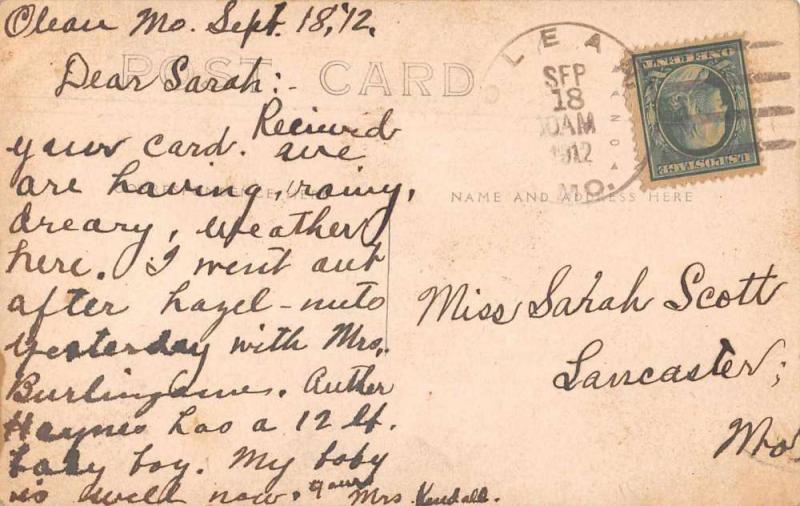 Olean Mo. Sept. 18, '12.
POST CARD
Dear Sarah:-
Reciievd
your card. We
are having, rainy,
dreary, weather
here. I went out
after hazel-nuts
yesterday with Mrs.
Burlingames. Auther
Haynes has a 12 lb.
baby boy. My baby
is well now. Yours
Mrs. Kendall.
OLEAN
SEP
18
10AM
1912
MO.
U.S. POSTAGE
ONE CENT
NAME AND ADDRESS HERE
Miss Sarah Scott
Lancaster,
Mo.